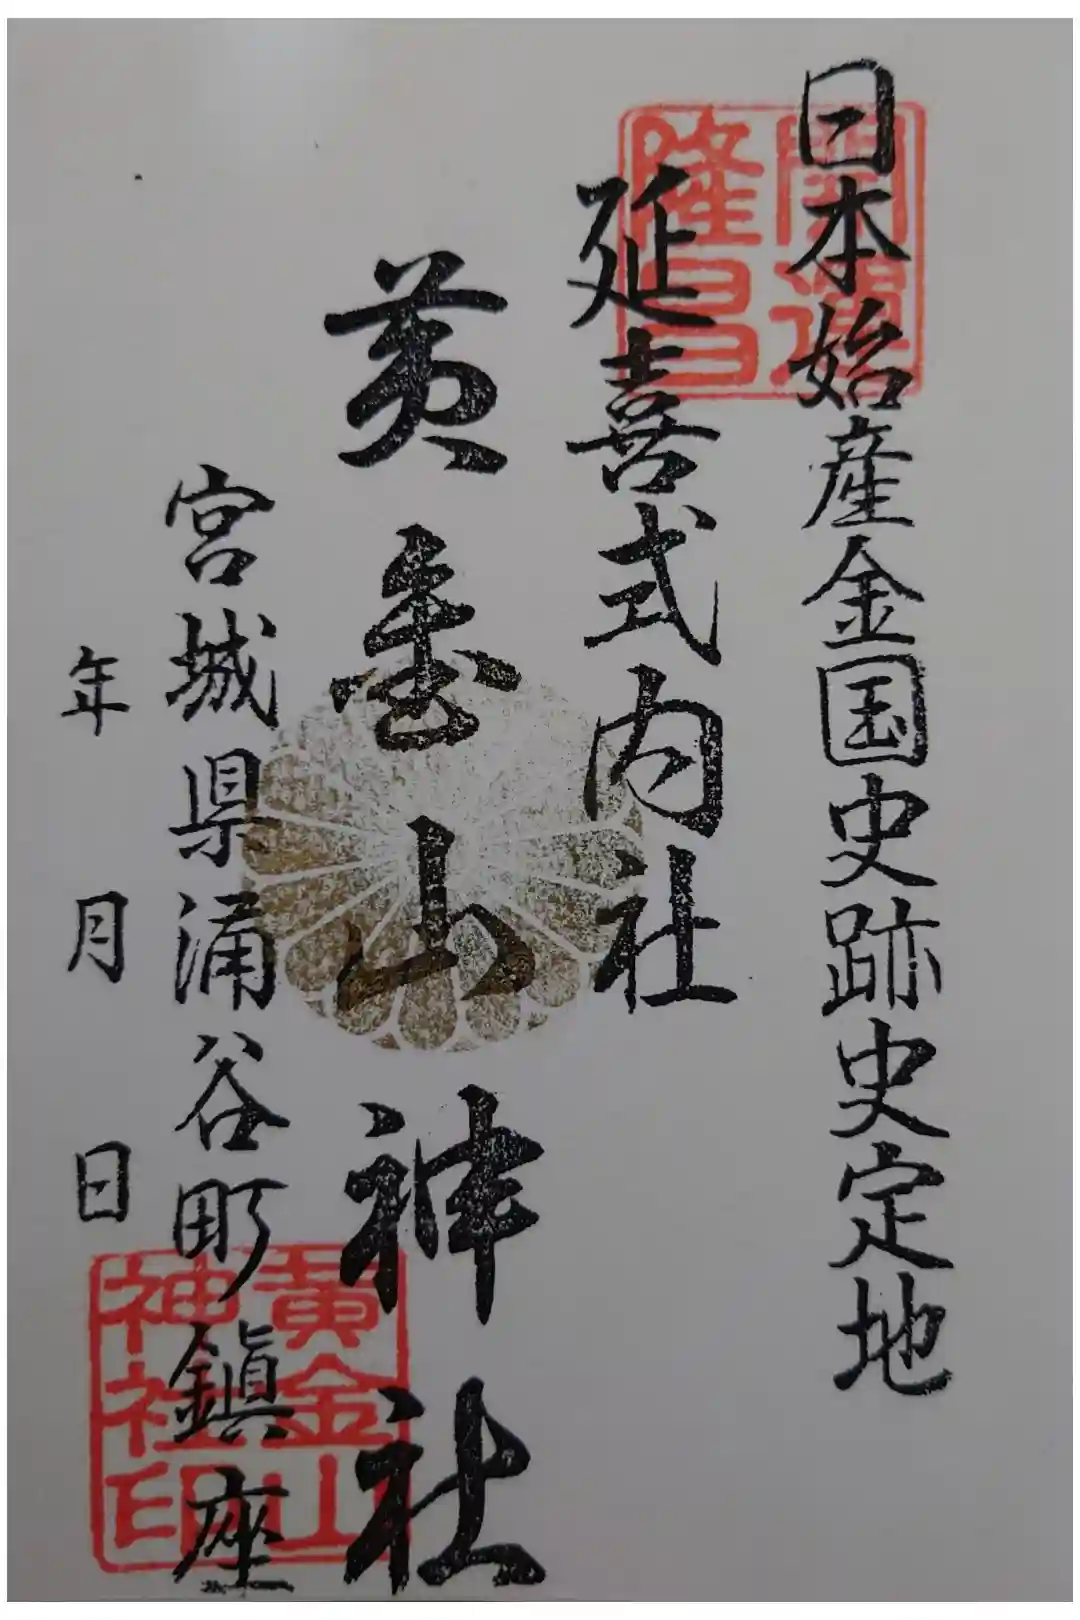 日本始産金国史跡史定地
延喜式内社
黄金山神社
宮城県涌谷町鎮座
年 月 日
開運
隆昌
黄金山
神社印